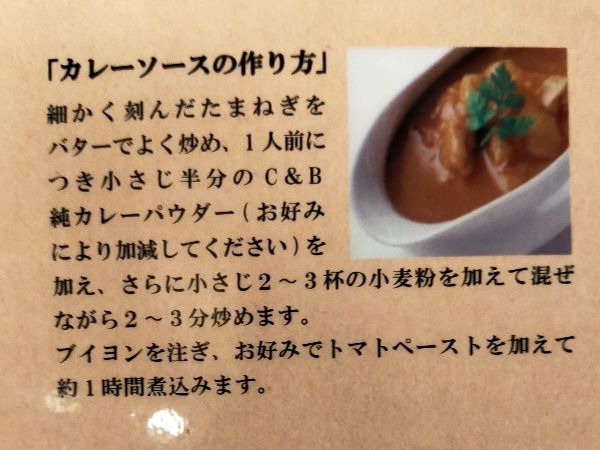 「カレーソースの作り方」
細かく刻んだたまねぎを
バターでよく炒め、1人前に
つき小さじ半分のC&B
純カレーパウダー(お好み
により加減してください)を
加え、さらに小さじ2～3杯の小麦粉を加えて混ぜ
ながら2～3分炒めます。
ブイヨンを注ぎ、お好みでトマトペーストを加えて
約1時間煮込みます。